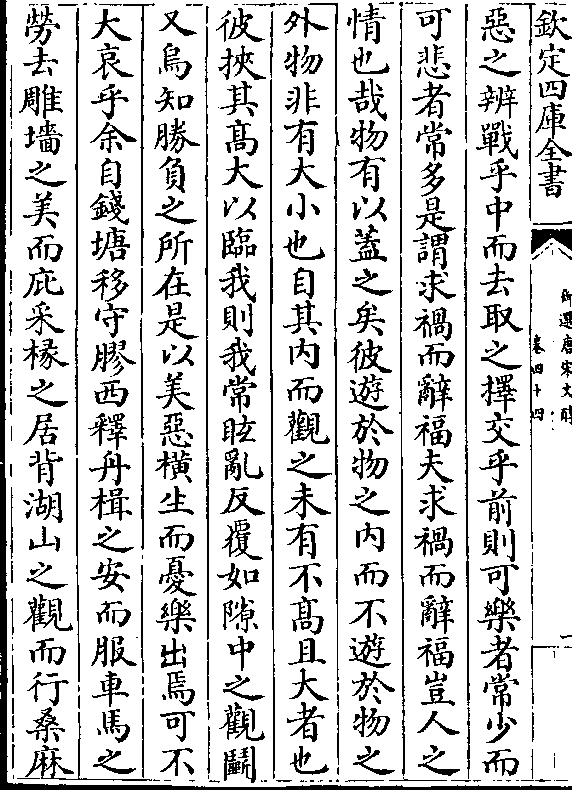 欽定四庫全書
御選唐宋文醇
卷四十四
一
惡之辨戰乎中而去取之擇交乎前則可樂者常少而
可悲者常多是謂求禍而辭福夫求禍而辭福豈人之
情也哉物有以蓋之矣彼遊於物之内而不遊於物之
外物非有大小也自其内而觀之未有不髙且大者也
彼挾其髙大以臨我則我常眩亂反覆如隙中之觀鬭
又烏知勝負之所在是以美惡橫生而憂樂出焉可不
大哀乎余自錢塘移守膠西釋舟楫之安而服車馬之
勞去雕墻之美而庇采椽之居背湖山之觀而行桑麻